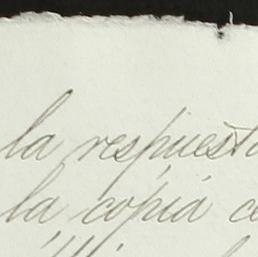 la respuesta
la copia